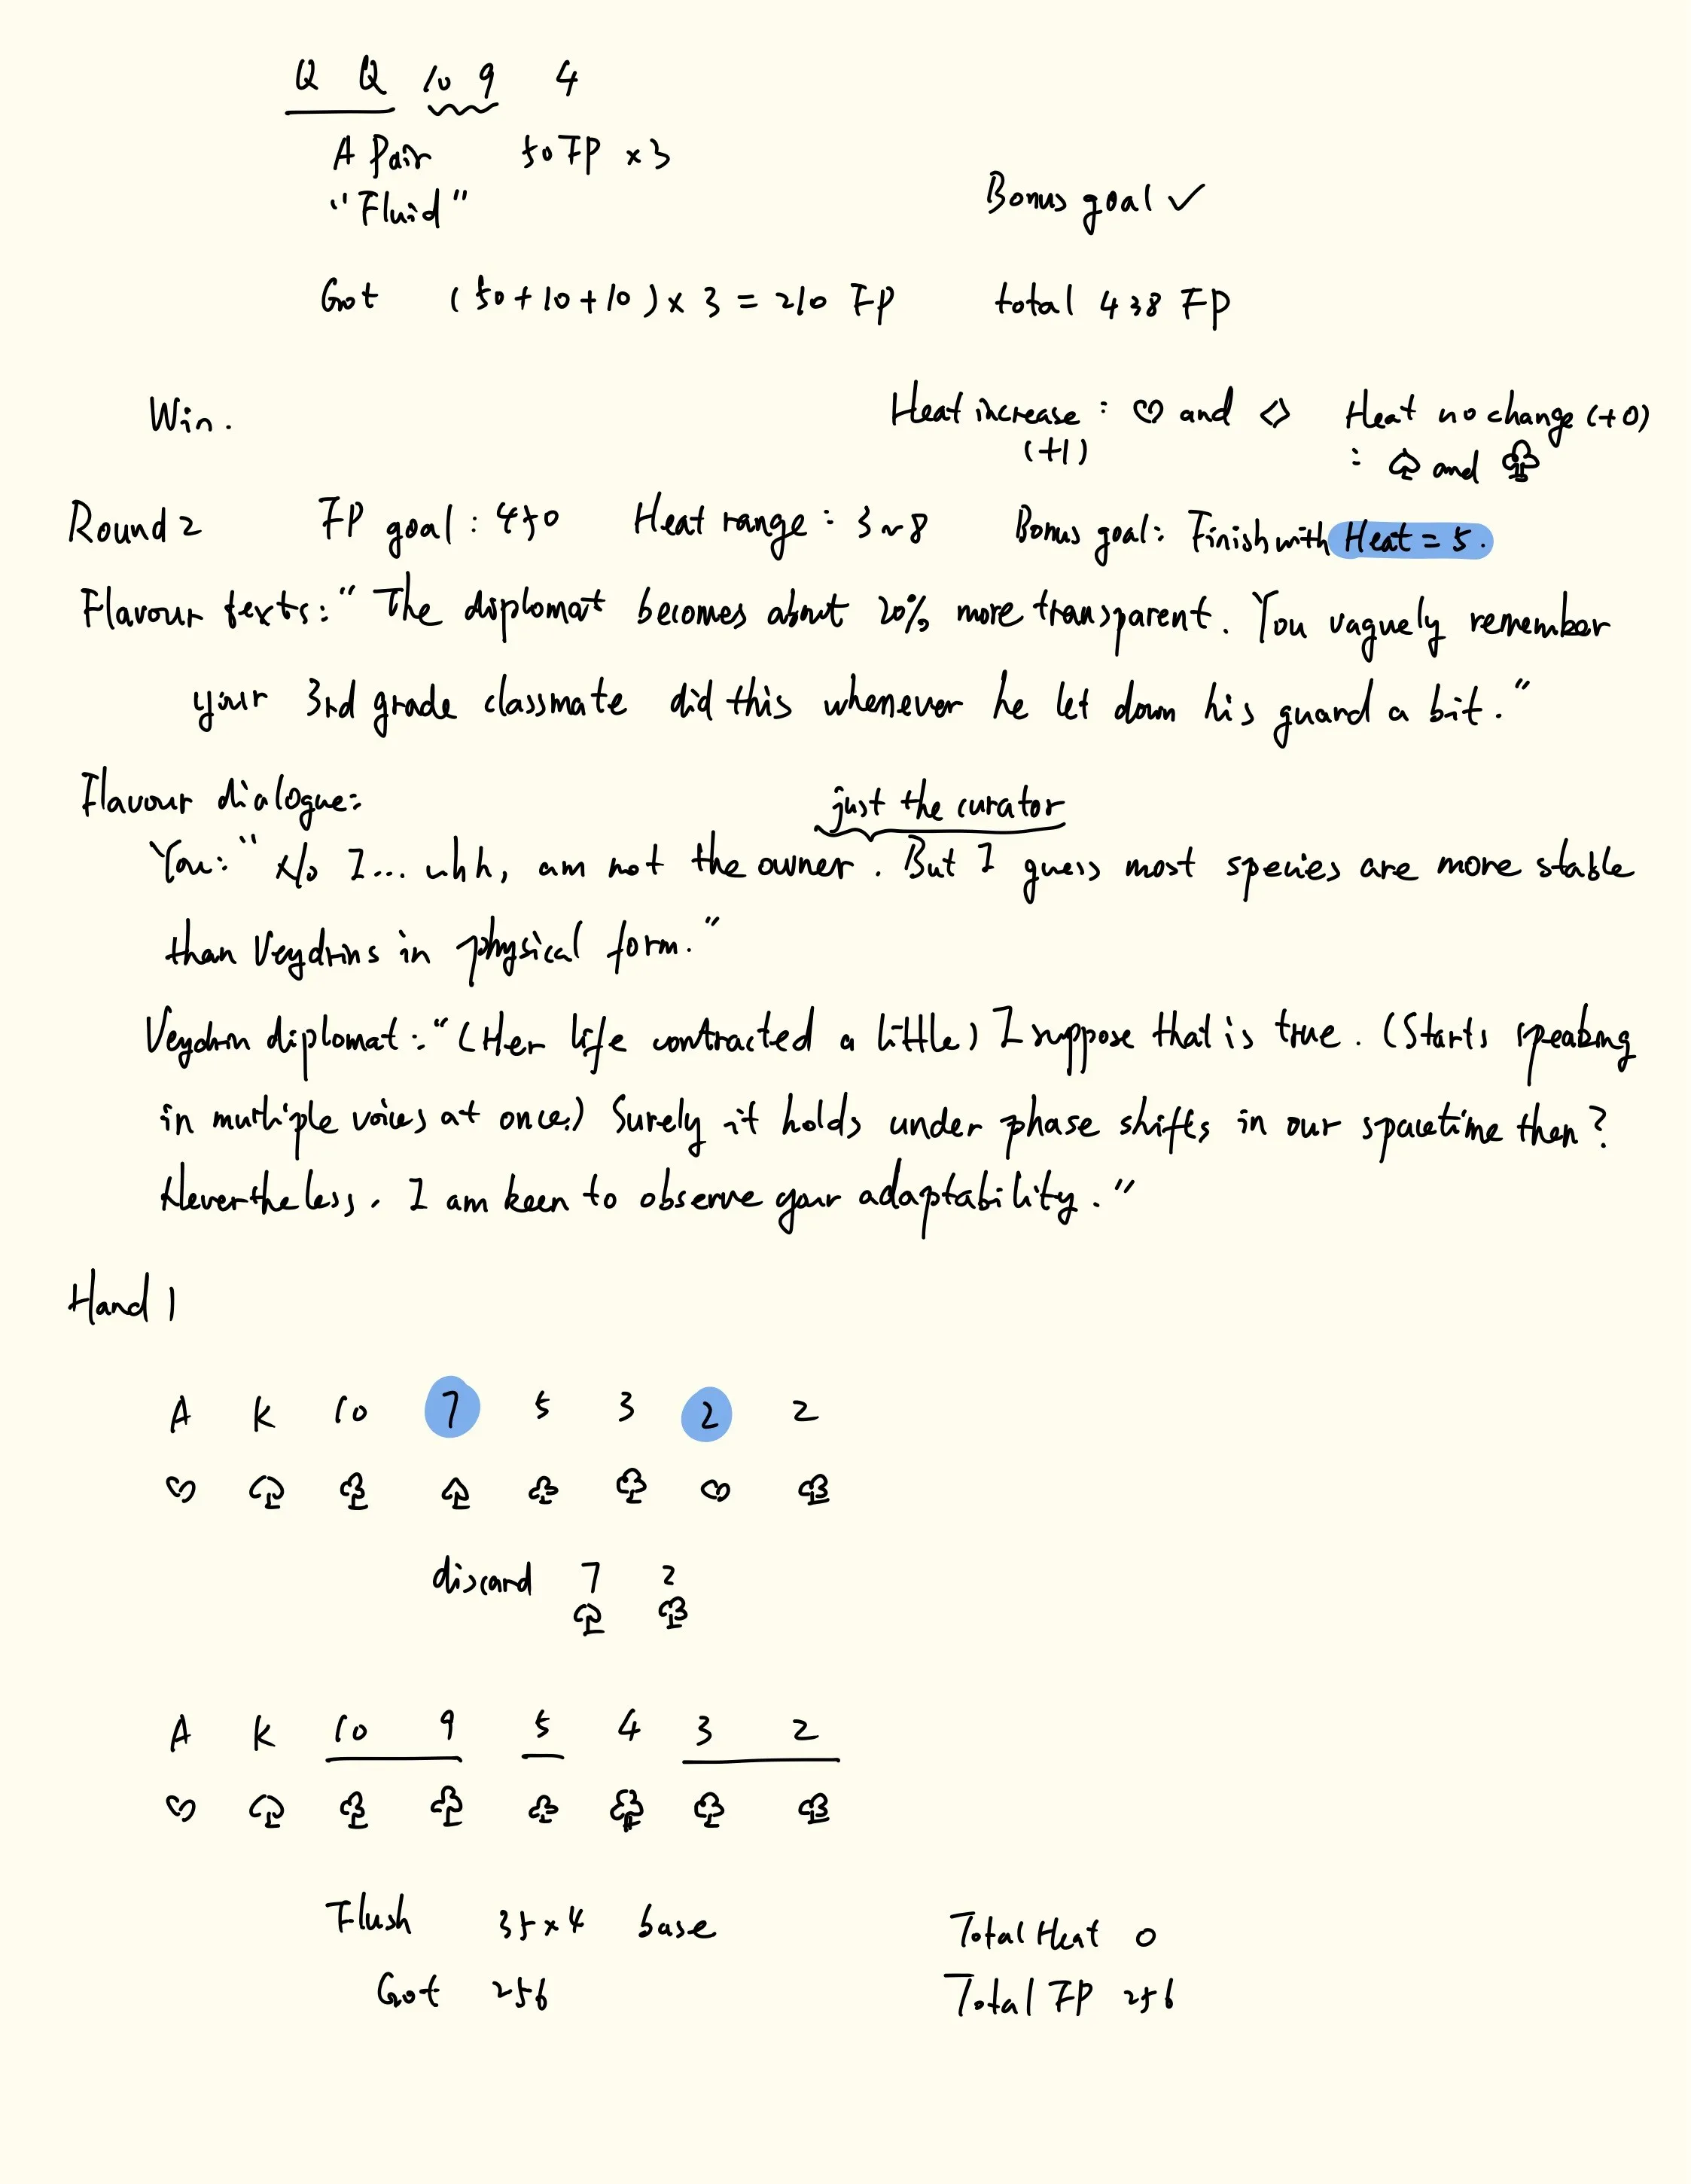 Q Q 10 9 4
A Pair 50 FP ×3
"Fluid"
Bonus goal ✓
Got (50+10+10)×3 = 210 FP total 438 FP
Win.
Heat increase : ♡ and ♢ Heat no change (+0)
(+1) : ♤ and ♧
Round 2 FP goal : 450 Heat range : 3~8 Bonus goal: Finish with Heat = 5.
Flavour texts: "The diplomat becomes about 20% more transparent. You vaguely remember
your 3rd grade classmate did this whenever he let down his guard a bit."
Flavour dialogue:
just the curator
You: "No I... uhh, am not the owner. But I guess most species are more stable
than Veydrins in physical form."
Veydrin diplomat: "(Her life contracted a little) I suppose that is true. (Starts speaking
in multiple voices at once) Surely it holds under phase shifts in our spacetime then?
Nevertheless, I am keen to observe your adaptability."
Hand 1
A K 10 7 5 3 2 2
♡ ♤ ♧ ♤ ♧ ♧ ♡ ♧
discard 7 2
♤ ♧
A K 10 9 5 4 3 2
♡ ♤ ♧ ♧ ♧ ♧ ♧ ♧
Flush 35×4 base
Total Heat 0
Got 256
Total FP 256